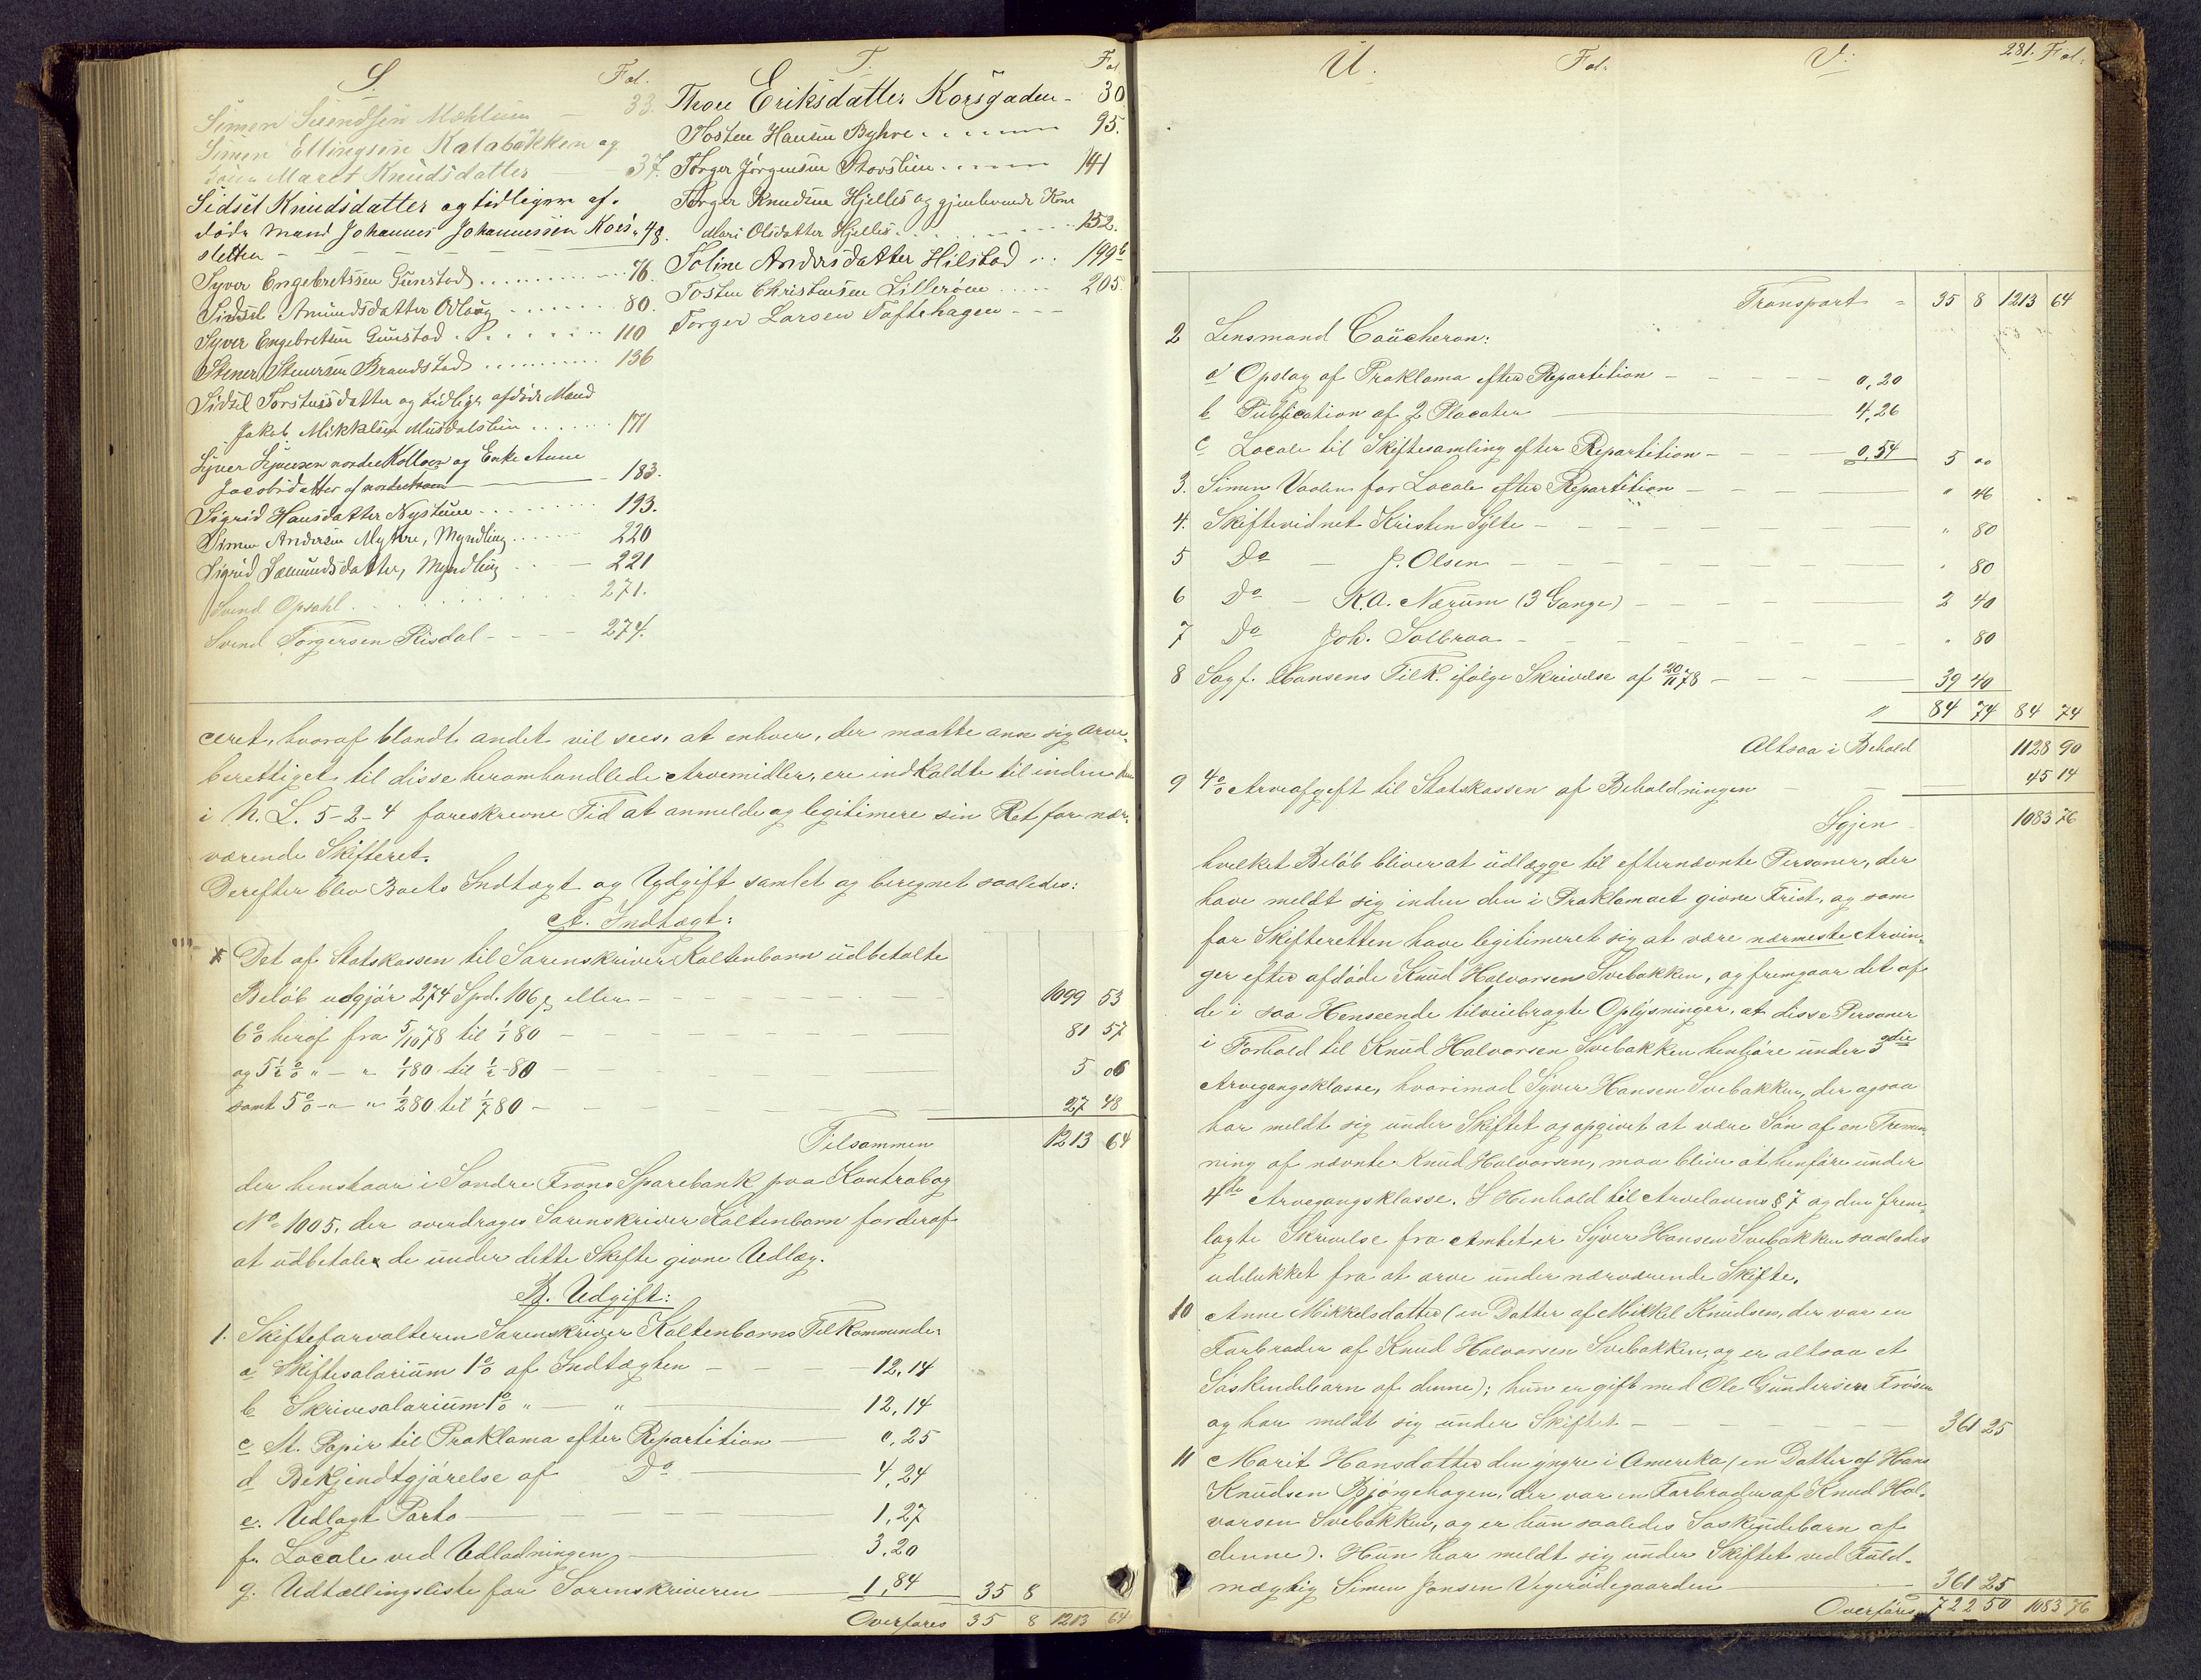 S. Fol.
Simen Svendsen Mæhlum - 33.
Simen Ellingsen Kalabækken og
Kone Marit Knudsdatter - 37.
Sidsel Knudsdatter og tidligere af-
døde Mand Johannes Johannessen Kors- 48.
sletten - - - -
Syver Engebretssen Gunstad . . . . . 76
Sidsel Amundsdatter Odlaug . . . . . 80.
Syver Engebretsen Gunstad . . . . . 110
Stener Stenersen Brandstad . . . . . 136
Sidsel Torstensdatter og tidligr afdøde Mand
Jakob Mikkelsen Musdalslien . . . . 171
Syver Syversen nordre Kolloen og Enke Anne
Jacobsdatter af nordre - 183.
Sigrid Hansdatter Nystuen . . . . . 193.
Simen Andersen Myhre, Myndling . . . . 220
Sigrid Sæmundsdatter, Myndling . . - 221
Svend Opsahl . . . . . 271.
Svend Torgersen Risdal - - - 274.
T. Fol
Thore Eriksdatter Korsgaden - 30
Tosten Hansen Byhre . . . . 95.
Torger Jørgensen Stovslien . . . . 141
Torger Knudsen Hjelles og gjenlevende Kone
Mari Olsdatter Hjelles . . . . . 152.
Toline Andersdatter Hilstad . . . 199b
Tosten Christensen Lillerøen . . . . 205.
Torger Larsen Toftehagen - - -
ceret, hvoraf blandt andet vil sees, at enhver, der maatte anse sig arve-
berettiget til disse heromhandlede Arvemidler, ere indkaldte til inden den
i N. L. 5-2-4 foreskrevne Tid at anmelde og legitimere sin Ret for nær-
værende Skifteret.
Derefter blev Boets Indtægt og Udgift samlet og beregnet saaledes:
A. Indtægt:
Det af Statskassen til Sorenskriver Kaltenborn udbetalte
Beløb udgjør 274 Spd. 106 ß eller - - - - 1099 53
6% heraf fra 5/10 78 til 1/1 80 - - - - 81 57
og 5½% " - " 1/1 80 til ½-80 - - - - 5 06
samt 5% - " - " ½ 80 til 1/7 80 - - - - 27 48
Tilsammen 1213 64
der henstaar i Søndre Frons Sparebank paa Kontrabog
No 1005, der overdrages Sorenskriver Kaltenborn forderaf
at udbetale de under dette Skifte givne Udlæg.
B. Udgift:
1. Skifteforvalteren Sorenskriver Kaltenborns Tilkommende
a Skiftesalarium 1% af Indtægten - - - 12,14
b Skrivesalarium 1% " - " - 12,14
c St. Papir til Proklama efter Repartition - 0,25
d Bekjendtgjørelse af Do - 4,24
e. Udlagt Porto - - - 1,27
f. Locale ved Udlodningen - 3,20
g. Udtællingsliste for Sorenskriveren - 1,84 35 8
Overføres 35 8 1213 64
U. Fol. V. 281. Fol.
Transport - 35 8 1213 64
2 Lensmand Coucheron:
a Opslag af Proklama efter Repartition - - - 0,20
b Publication af 2 Placater - 4,26
c Locale til Skiftesamling efter Repartition - - - 0,54 5 00
3. Simen Vaalen for Locale efter Repartition - - - " 46
4. Skiftevidnet Kristen Sylte - - - - " 80
5 Do - P. Olsen - - - - " 80
6 Do - K.A. Nærum (3 Gange) - - - 2 40
7 Do Joh. Solbraa - - - - " 80
8 Sagf. Hansens Tilk. ifølge Skrivelse af 20/11 78 - - - 39 40
" 84 74 84 74
Altsaa i Behold 1128 90
9 4% Arveafgift til Statskassen af Beholdningen - 45 14
Igjen 1083 76
hvilket Beløb bliver at udlægge til efternævnte Personer, der
have meldt sig inden den i Proklamaet givne Frist, og som
for Skifteretten have legitimeret sig at være nærmeste Arvin-
ger efter afdøde Knud Halvorsen Svebakken, og fremgaar det af
de i saa Henseende tilveiebragte Oplysninger, at disse Personer
i Forhold til Knud Halvorsen Svebakken henhøre under 3die
Arvegangsklasse, hvorimod Syver Hansen Svebakken, der ogsaa
har meldt sig under Skiftet og opgivet at være Søn af en Fremen-
ning af nævnte Knud Halvorsen, maa blive at henføre under
4de Arvegangsklasse. I Henhold til Arvelovens § 7 og den frem-
lagte Skrivelse fra Amtet er Syver Hansen Svebakken saaledes
udelukket fra at arve under nærværende Skifte.
10 Anne Mikkelsdatter (en Datter af Mikkel Knudsen, der var en
Farbroder af Knud Halvorsen Svebakken, og er altsaa et
Søskendebarn af denne); hun er gift med Ole Gundersen Frøsen
og har meldt sig under Skiftet - - - - 361 25
11 Marit Hansdatter den yngre i Amerika (en Datter af Hans
Knudsen Bjørgehagen, der var en Farbroder af Knud Hal-
vorsen Svebakken, og er hun saaledes Søskendebarn af
denne). Hun har meldt sig under Skiftet ved Fuld-
mægtig Simen Jonsen Vigerødegaarden - 361 25
Overføres 722 50 1083 76